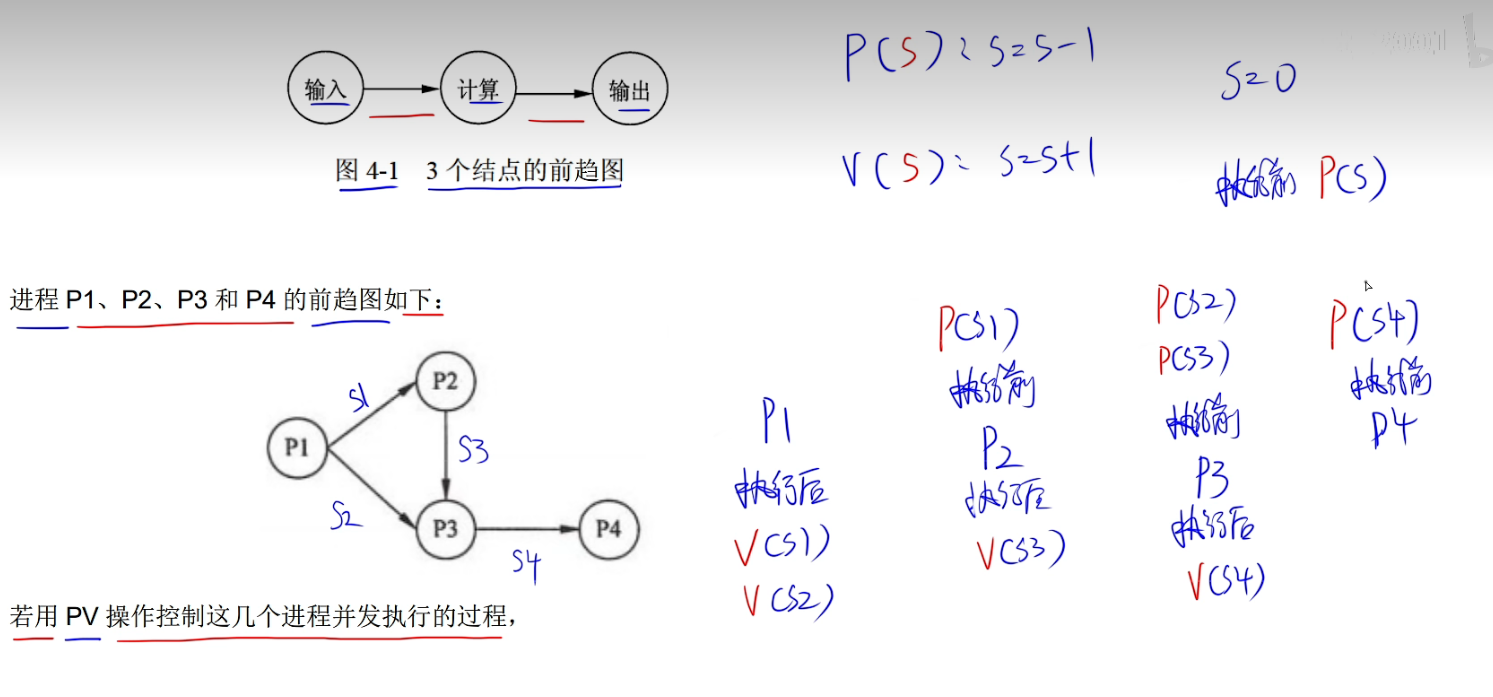 输入 计算 输出
图 4-1 3 个结点的前趋图
P(S): S=S-1
V(S): S=S+1
S=0
执行前 P(S)
进程 P1、P2、P3 和 P4 的前趋图如下:
P1
P2
P3
P4
S1
S2
S3
S4
若用 PV 操作控制这几个进程并发执行的过程,
P1
执行后
V(S1)
V(S2)
P(S1)
执行前
P2
执行后
V(S3)
P(S2)
P(S3)
执行前
P3
执行后
V(S4)
P(S4)
执行前
P4